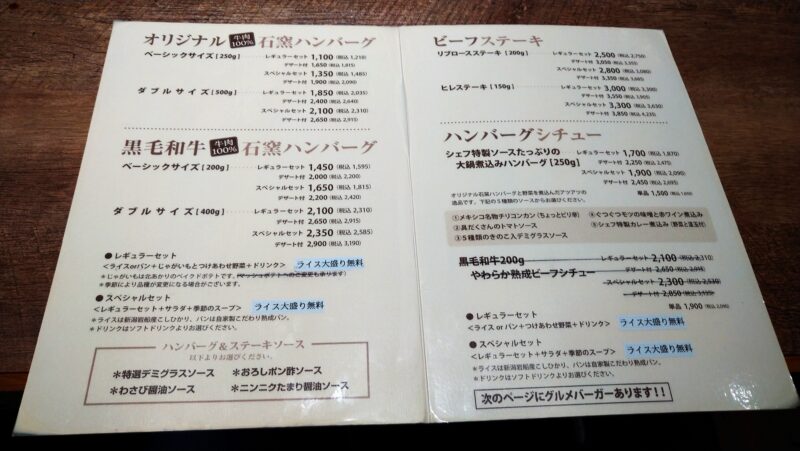 オリジナル 牛肉100% 石窯ハンバーグ
ベーシックサイズ [250g] レギュラーセット 1,100 (税込 1,210)
デザート付 1,650 (税込 1,815)
スペシャルセット 1,350 (税込 1,485)
デザート付 1,900 (税込 2,090)
ダブルサイズ [500g] レギュラーセット 1,850 (税込 2,035)
デザート付 2,400 (税込 2,640)
スペシャルセット 2,100 (税込 2,310)
デザート付 2,650 (税込 2,915)
黒毛和牛 牛肉100% 石窯ハンバーグ
ベーシックサイズ [200g] レギュラーセット 1,450 (税込 1,595)
デザート付 2,000 (税込 2,200)
スペシャルセット 1,650 (税込 1,815)
デザート付 2,200 (税込 2,420)
ダブルサイズ [400g] レギュラーセット 2,100 (税込 2,310)
デザート付 2,650 (税込 2,915)
スペシャルセット 2,350 (税込 2,585)
デザート付 2,900 (税込 3,190)
●レギュラーセット
<ライスorパン+じゃがいもとつけあわせ野菜+ドリンク> ライス大盛り無料
*じゃがいもは北あかりのベイクドポテトです。マッシュポテトへのご変更も承ります
*季節により品種が変更になる場合がございます。
●スペシャルセット
<レギュラーセット+サラダ+季節のスープ> ライス大盛り無料
*ライスは新潟岩船産こしひかり、パンは自家製こだわり熟成パン。
*ドリンクはソフトドリンクよりお選びください。
ハンバーグ&ステーキソース
以下よりお選びください。
*特選デミグラスソース *おろしポン酢ソース
*わさび醤油ソース *ニンニクたまり醤油ソース
ビーフステーキ
リブロースステーキ [200g] レギュラーセット 2,500 (税込 2,750)
デザート付 3,050 (税込 3,355)
スペシャルセット 2,800 (税込 3,080)
デザート付 3,350 (税込 3,685)
ヒレステーキ [150g] レギュラーセット 3,000 (税込 3,300)
デザート付 3,550 (税込 3,905)
スペシャルセット 3,300 (税込 3,630)
デザート付 3,850 (税込 4,235)
ハンバーグシチュー
シェフ特製ソースたっぷりの
大鍋煮込みハンバーグ [250g]
レギュラーセット 1,700 (税込 1,870)
デザート付 2,250 (税込 2,475)
スペシャルセット 1,900 (税込 2,090)
デザート付 2,450 (税込 2,695)
単品 1,500 (税込 1,650)
オリジナル石窯ハンバーグと野菜を煮込んだアツアツの
逸品です。下記の5種類のソースからお選びください。
①メキシコ名物チリコンカン(ちょっとピリ辛)
②具だくさんのトマトソース
③5種類のきのこ入デミグラスソース
④ぐつぐつモツの味噌と赤ワイン煮込み
⑤シェフ特製カレー煮込み(野菜と温玉付)
黒毛和牛200g
やわらか熟成ビーフシチュー
レギュラーセット 2,100 (税込 2,310)
デザート付 2,650 (税込 2,915)
スペシャルセット 2,300 (税込 2,530)
デザート付 2,850 (税込 3,135)
単品 1,900 (税込 2,090)
●レギュラーセット
<ライス or パン+つけあわせ野菜+ドリンク> ライス大盛り無料
●スペシャルセット
<レギュラーセット+サラダ+季節のスープ> ライス大盛り無料
*ライスは新潟岩船産こしひかり、パンは自家製こだわり熟成パン。
*ドリンクはソフトドリンクよりお選びください。
次のページにグルメバーガーあります!!